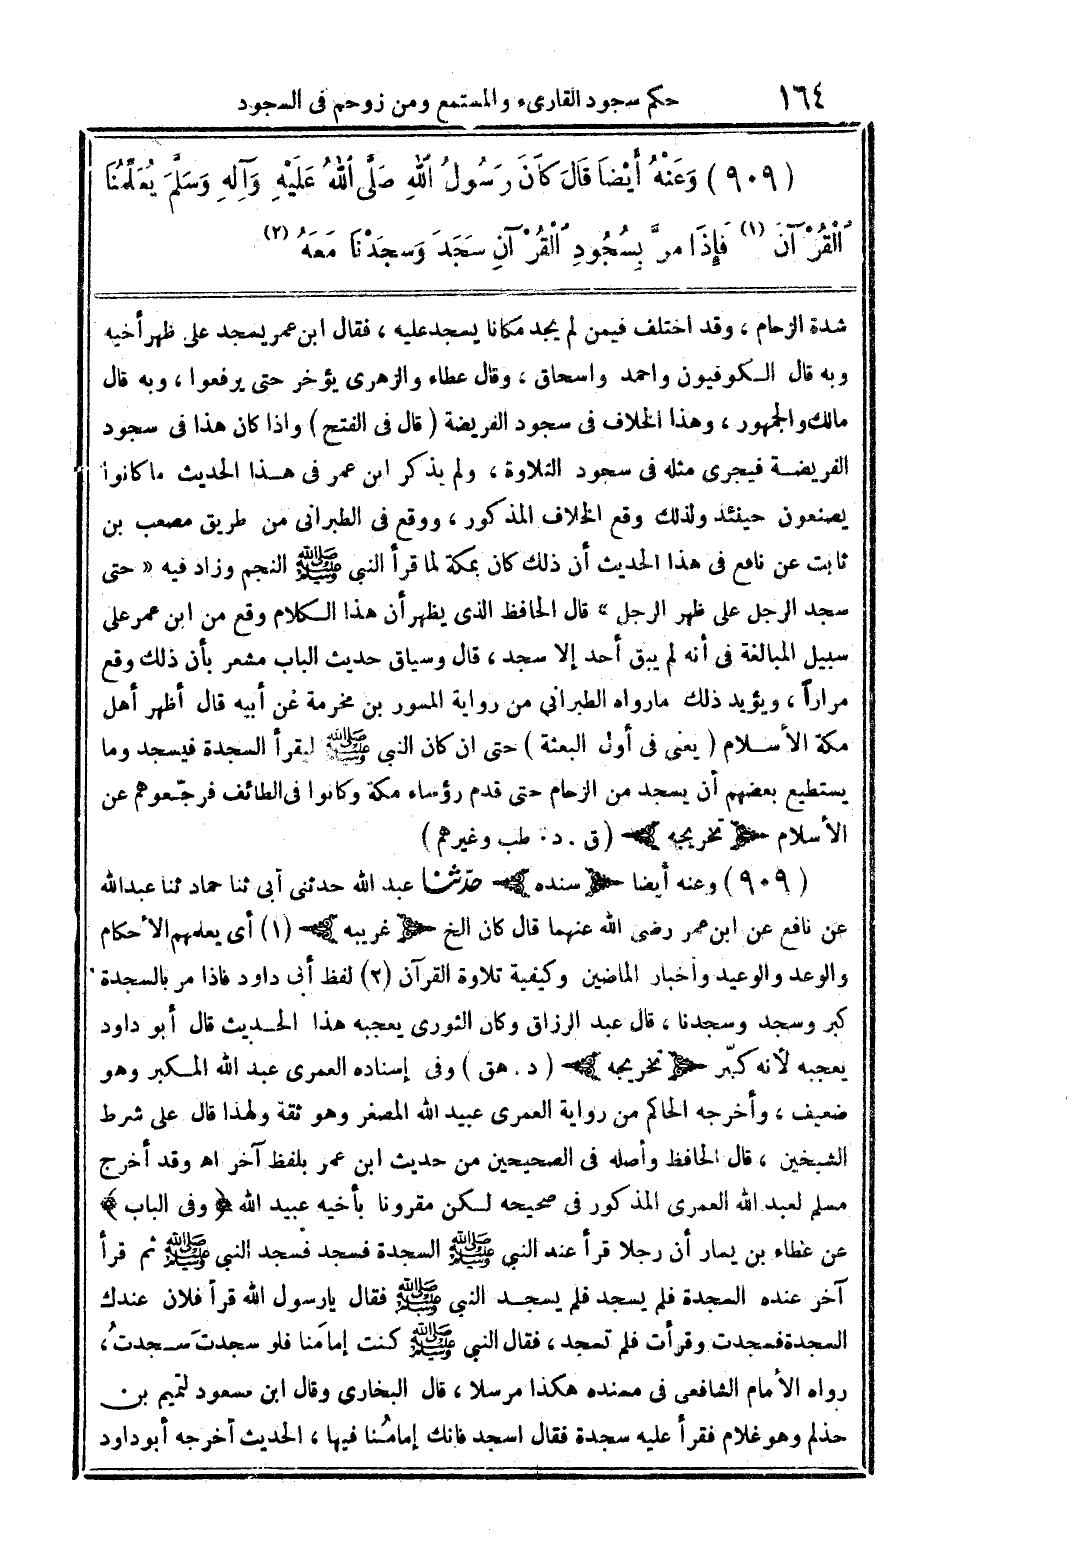 ١٦٤ حكم سجود القارىء والمستمع ومن زوحم فى السجود
(٩٠٩) وَعَنْهُ أَيْضًا قَالَ كَانَ رَسُولُ ٱللهِ صَلَّى ٱللهُ عَلَيْهِ وَآلِهِ وَسَلَّمَ يُعَلِّمُنَا
ٱلْقُرْآنَ (١) فَإِذَا مرَّ بِسُجُودِ ٱلْقُرْآنِ سَجَدَ وَسجَدْنَا مَعَهُ (٢)
شدة الزحام ، وقد اختلف فيمن لم يجد مكانا يسجد عليه ، فقال ابن عمر يسجد على ظهر أخيه
وبه قال الكوفيون واحمد واسحاق ، وقال عطاء والزهرى يؤخر حتى يرفعوا ، وبه قال
مالك والجمهور ، وهذا الخلاف فى سجود الفريضة ( قال فى الفتح ) واذا كان هذا فى سجود
الفريضة فيجرى مثله فى سجود التلاوة ، ولم يذكر ابن عمر فى هذا الحديث ما كانوا
يصنعون حينئذ ولذلك وقع الخلاف المذكور ، ووقع فى الطبرانى من طريق مصعب بن
ثابت عن نافع فى هذا الحديث أن ذلك كان بمكة لما قرأ النبى ﷺ النجم وزاد فيه « حتى
سجد الرجل على ظهر الرجل » قال الحافظ الذى يظهر أن هذا الكلام وقع من ابن عمر على
سبيل المبالغة فى أنه لم يبق أحد إلا سجد ، قال وسياق حديث الباب مشعر بأن ذلك وقع
مراراً ، ويؤيد ذلك مارواه الطبراني من رواية المسور بن مخرمة عن أبيه قال أظهر أهل
مكة الأسلام ( يعنى فى أول البعثة ) حتى ان كان النبى ﷺ ليقرأ السجدة فيسجد وما
يستطيع بعضهم أن يسجد من الزحام حتى قدم رؤساء مكة وكانوا فى الطائف فرجّعوهم عن
الأسلام ﴿ تخريجه ﴾ ( ق . د . طب وغيرهم )
(٩٠٩) وعنه أيضا ﴿ سنده ﴾ حدّثنا عبد الله حدثنى أبى ثنا حماد ثنا عبدالله
عن نافع عن ابن عمر رضى الله عنهما قال كان الخ ﴿ غريبه ﴾ (١) أى يعلمهم الأحكام
والوعد والوعيد وأخبار الماضين وكيفية تلاوة القرآن (٢) لفظ أبى داود فاذا مر بالسجدة
كبر وسجد وسجدنا ، قال عبد الرزاق وكان الثورى يعجبه هذا الحديث قال أبو داود
يعجبه لأنه كبّر ﴿ تخريجه ﴾ ( د . هق ) وفى إسناده العمرى عبد الله المكبر وهو
ضعيف ، وأخرجه الحاكم من رواية العمرى عبيد الله المصغر وهو ثقة ولهذا قال على شرط
الشيخين ، قال الحافظ وأصله فى الصحيحين من حديث ابن عمر بلفظ آخر اه وقد أخرج
مسلم لعبد الله العمرى المذكور فى صحيحه لكن مقرونا بأخيه عبيد الله ﴿ وفى الباب ﴾
عن عطاء بن يسار أن رجلا قرأ عند النبى ﷺ السجدة فسجد فسجد النبى ﷺ ثم قرأ
آخر عنده السجدة فلم يسجد فلم يسجد النبى ﷺ فقال يارسول الله قرأ فلان عندك
السجدة فسجدت وقرأت فلم تسجد ، فقال النبى ﷺ كنت إمامَنا فلو سجدتَ سجدتُ ،
رواه الأمام الشافعى فى مسنده هكذا مرسلا ، قال البخارى وقال ابن مسعود لتميم بن
حذلم وهو غلام فقرأ عليه سجدة فقال اسجد فانك إمامُنا فيها ، الحديث أخرجه أبوداود